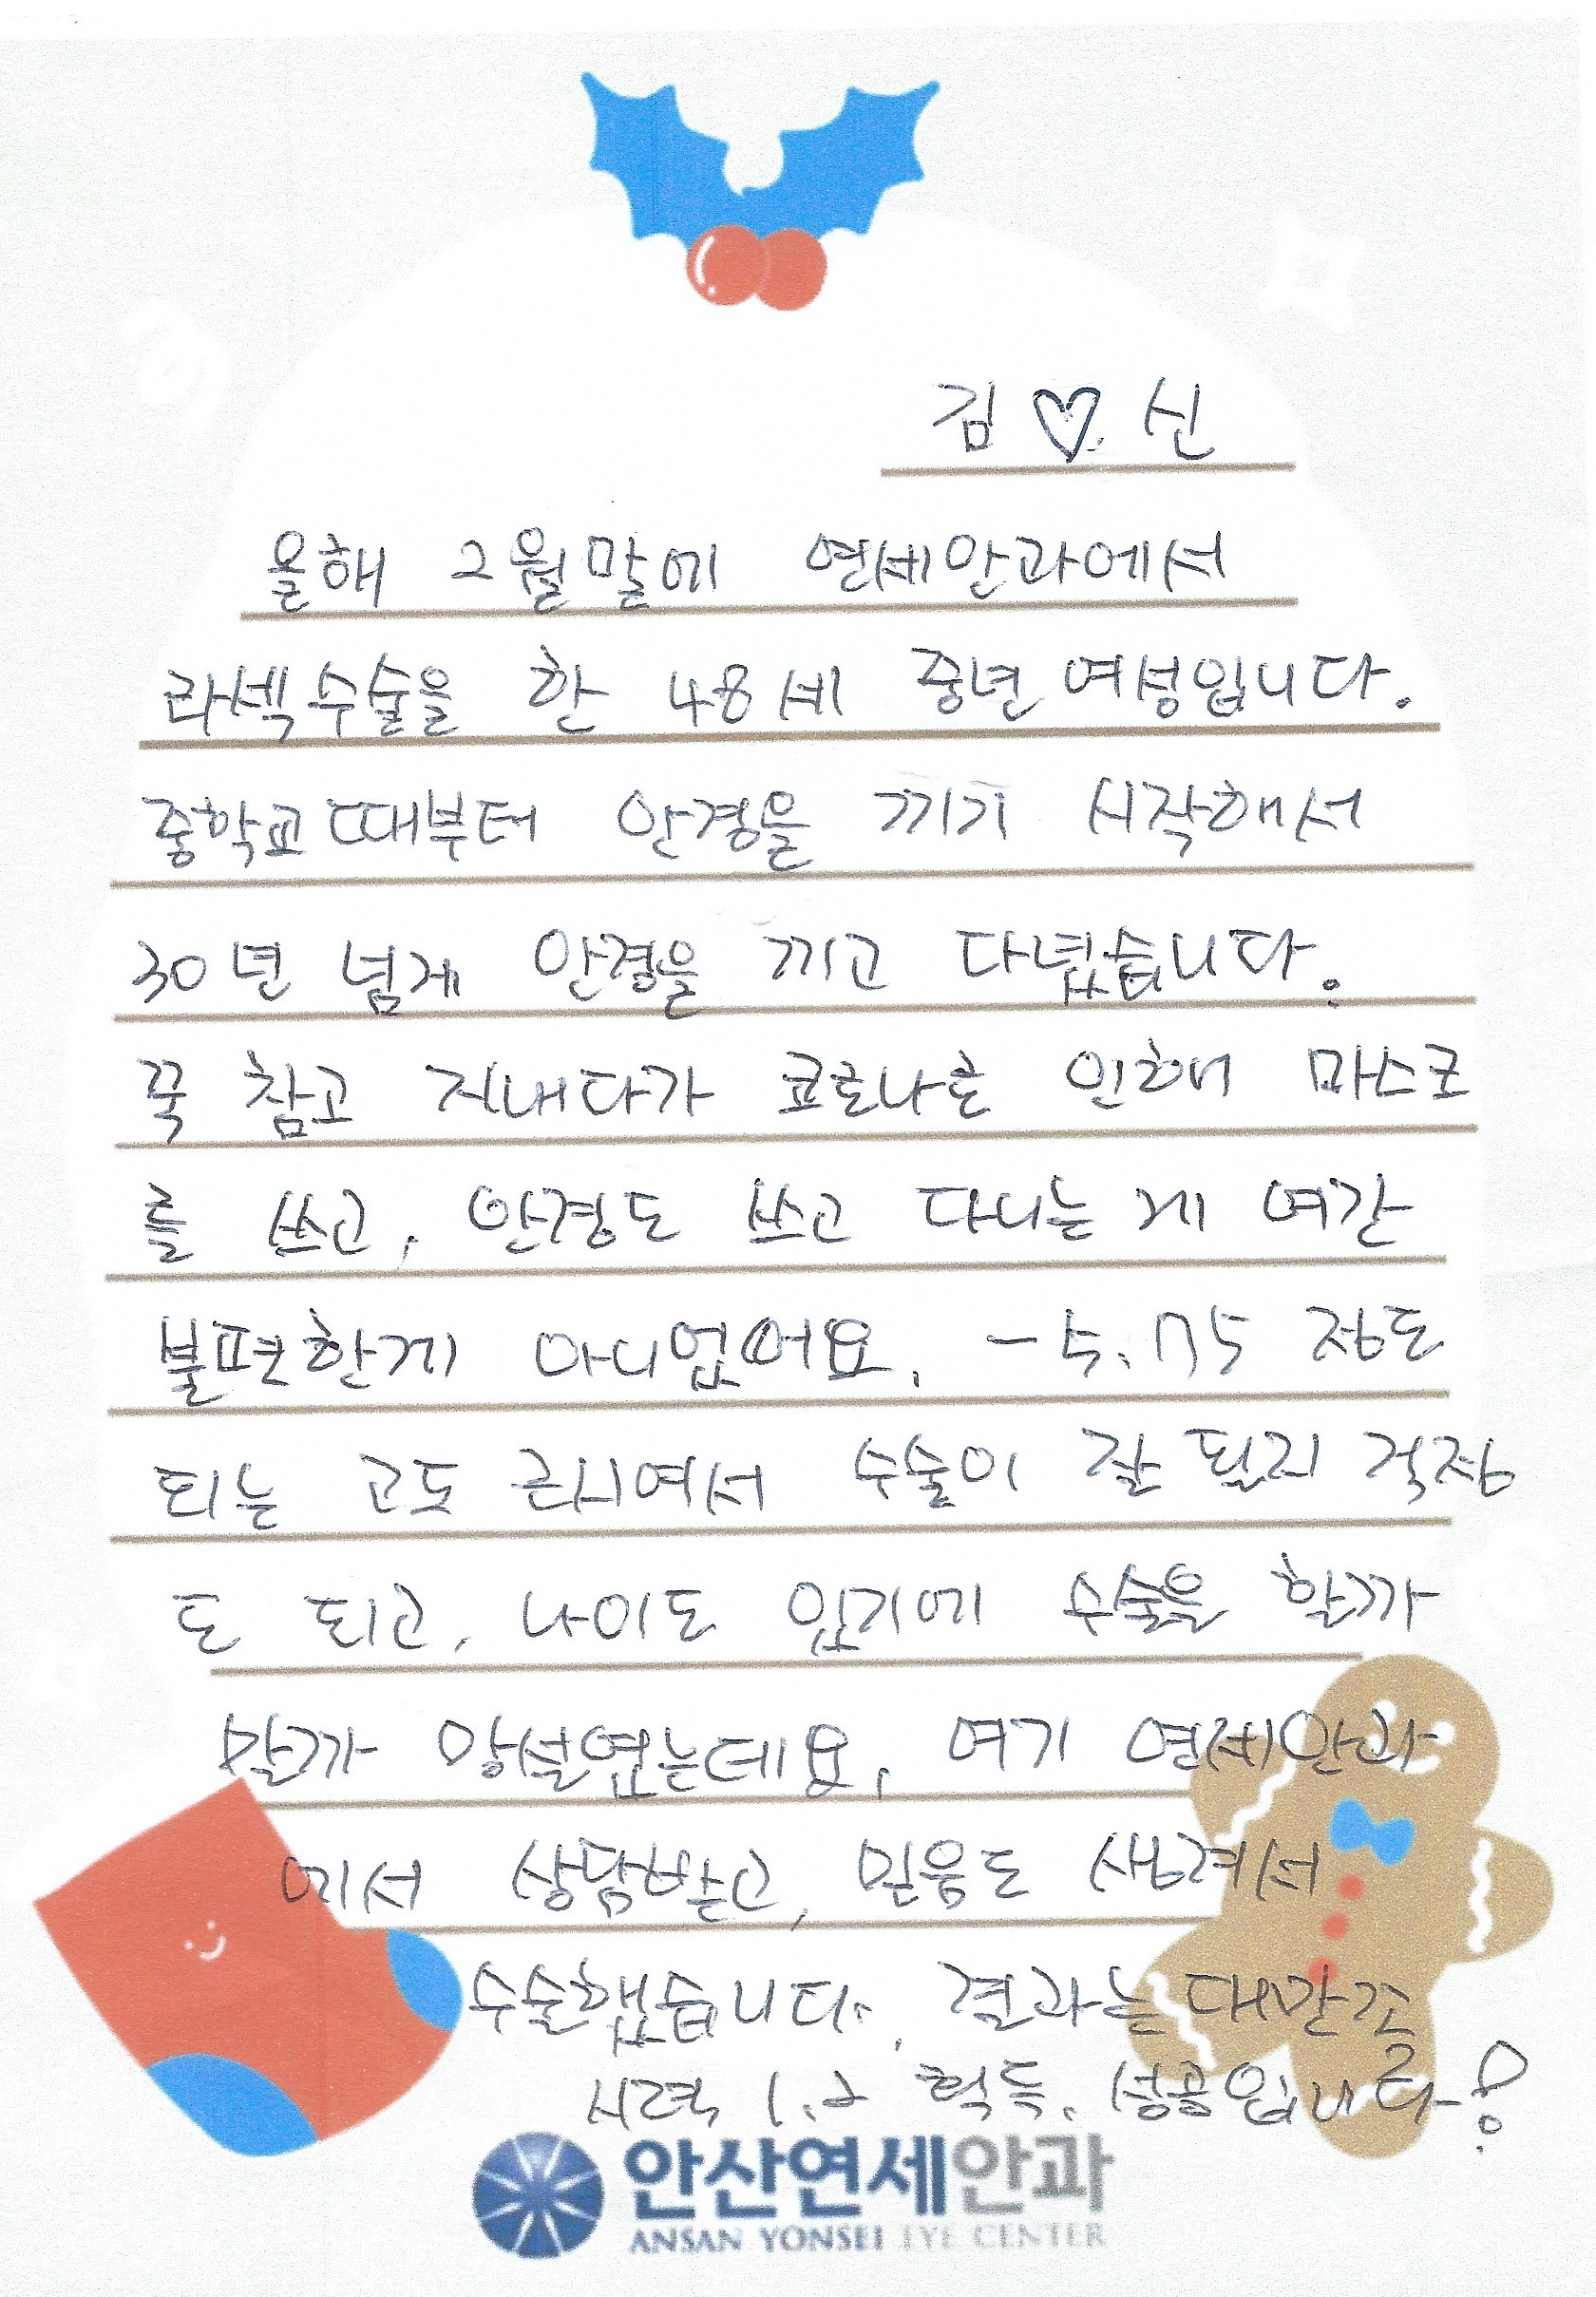 김 ♡ 신
올해 2월말에 연세안과에서
라섹수술을 한 48세 중년 여성입니다.
중학교때부터 안경을 끼기 시작해서
30년 넘게 안경을 끼고 다녔습니다.
꾹 참고 지내다가 코로나로 인해 마스크
를 쓰고, 안경도 쓰고 다니는 게 여간
불편한게 아니었어요. -5.75 정도
되는 고도 근시여서 수술이 잘 될지 걱정
도 되고, 나이도 있기에 수술을 할까
말까 망설였는데요, 여기 연세안과
에서 상담받고, 믿음도 생겨서
수술했습니다. 결과는 대만족
시력 1.2 획득. 성공입니다!
안산연세안과
ANSAN YONSEI EYE CENTER